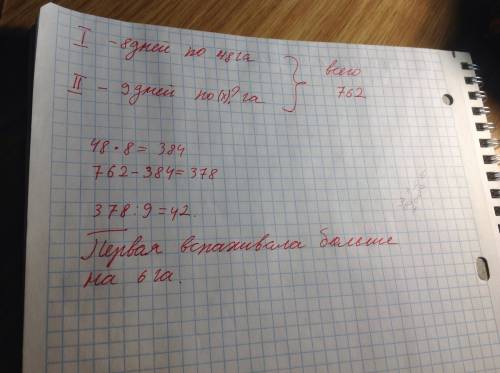 I - 8 дней по 48 га
II - 9 дней по (x)? га
всего
762
48 · 8 = 384
762 - 384 = 378
378 : 9 = 42.
Первая вспахивала больше
на 6 га.